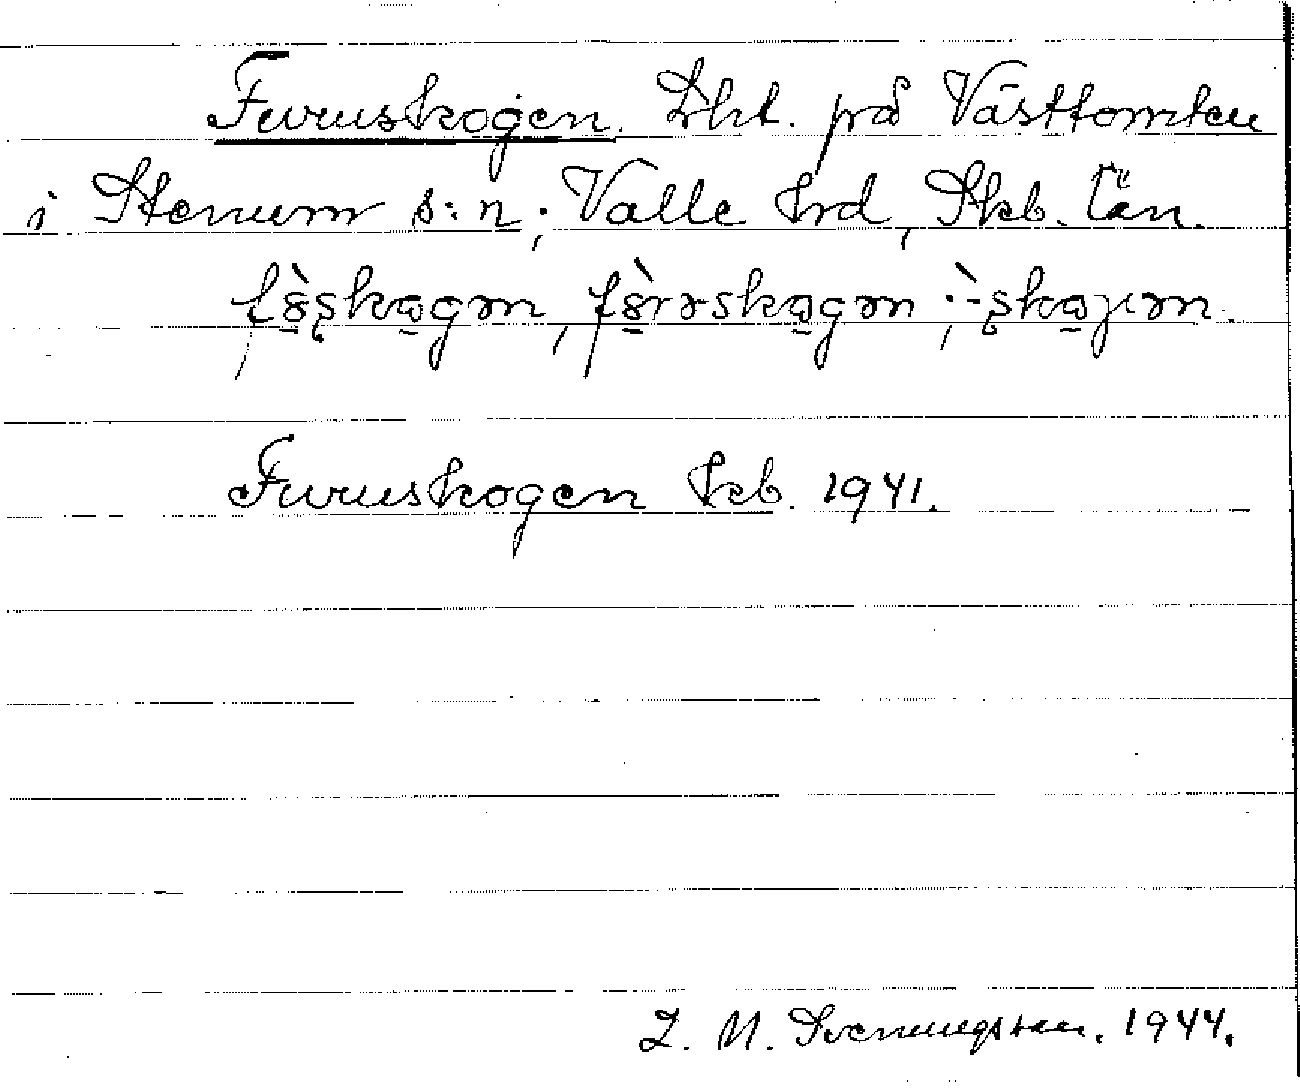 Furuskogen. Lht. på Västtomten
i Stenum s:n, Valle hrd, Skb. län.
fɷ̀ʂkɷgən, fɷ̀rəskɷgən, :-̀ʂkɷjən.
Furuskogen Kkb. 1941.
Z. N. Svenningsson. 1944.